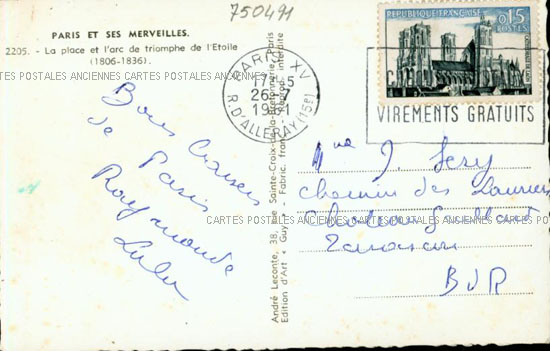 750491
PARIS ET SES MERVEILLES.
2205. - La place et l'arc de triomphe de l'Etoile
(1806-1836).
CARTES POSTALES ANCIENNES CARTES POSTALES ANCIENNES CARTES POSTALES ANCIENNES CARTES POSTALES
REPUBLIQUE FRANÇAISE
0,15
POSTES
PARIS XV
17H 15
26-
19 1
R. D'ALLERAY (15E)
VIREMENTS GRATUITS
André Leconte, 38, rue Sainte-Croix-de-la-Bretonnerie, Paris
Edition d'Art « Guy » - Fabric. franç. - Reprod. interdite
Bons baisers
de Paris
Raymonde
Lulu
Mme J.
chemin des Lauriers
Chateau
BDR
CARTES POSTALES ANCIENNES CARTES POSTALES ANCIENNES CARTES POSTALES ANCIENNES